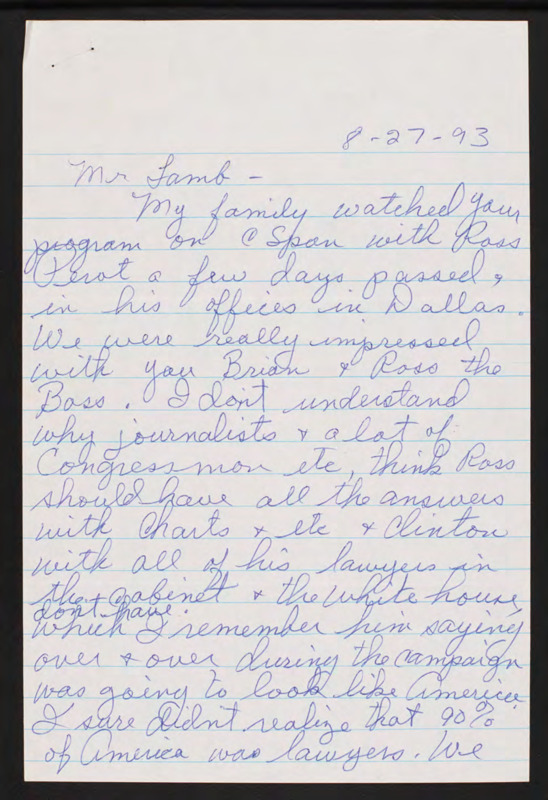 8-27-93
Mr Lamb -
My family watched your
program on C Span with Ross
Perot a few days passed,
in his offices in Dallas.
We were really impressed
with you Brian & Ross the
Boss. I don't understand
why journalists & a lot of
Congressmen etc, think Ross
should have all the answers
with Charts & etc & Clinton
with all of his lawyers in
the cabinet & the White house,
don't have.
which I remember him saying
over & over during the campaign
was going to look like America.
I sure didn't realize that 90%
of America was lawyers. We